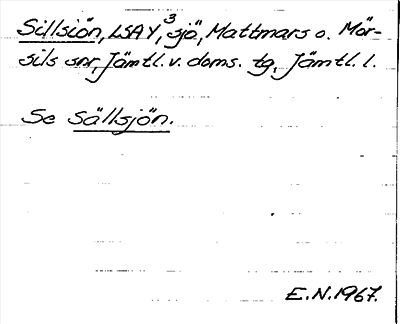 Sillsiön, LSAY, ³sjö, Mattmars o. Mör-
sils snr, Jämtl. v. doms. tg, Jämtl. l.
Se Sällsjön.
E.N. 1967.